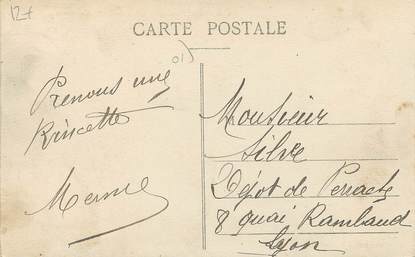 12+
CARTE POSTALE
Prenons une
Rincette
Monsieur
Silve
Dépot de Perrache
8 quai Rambaud
Lyon